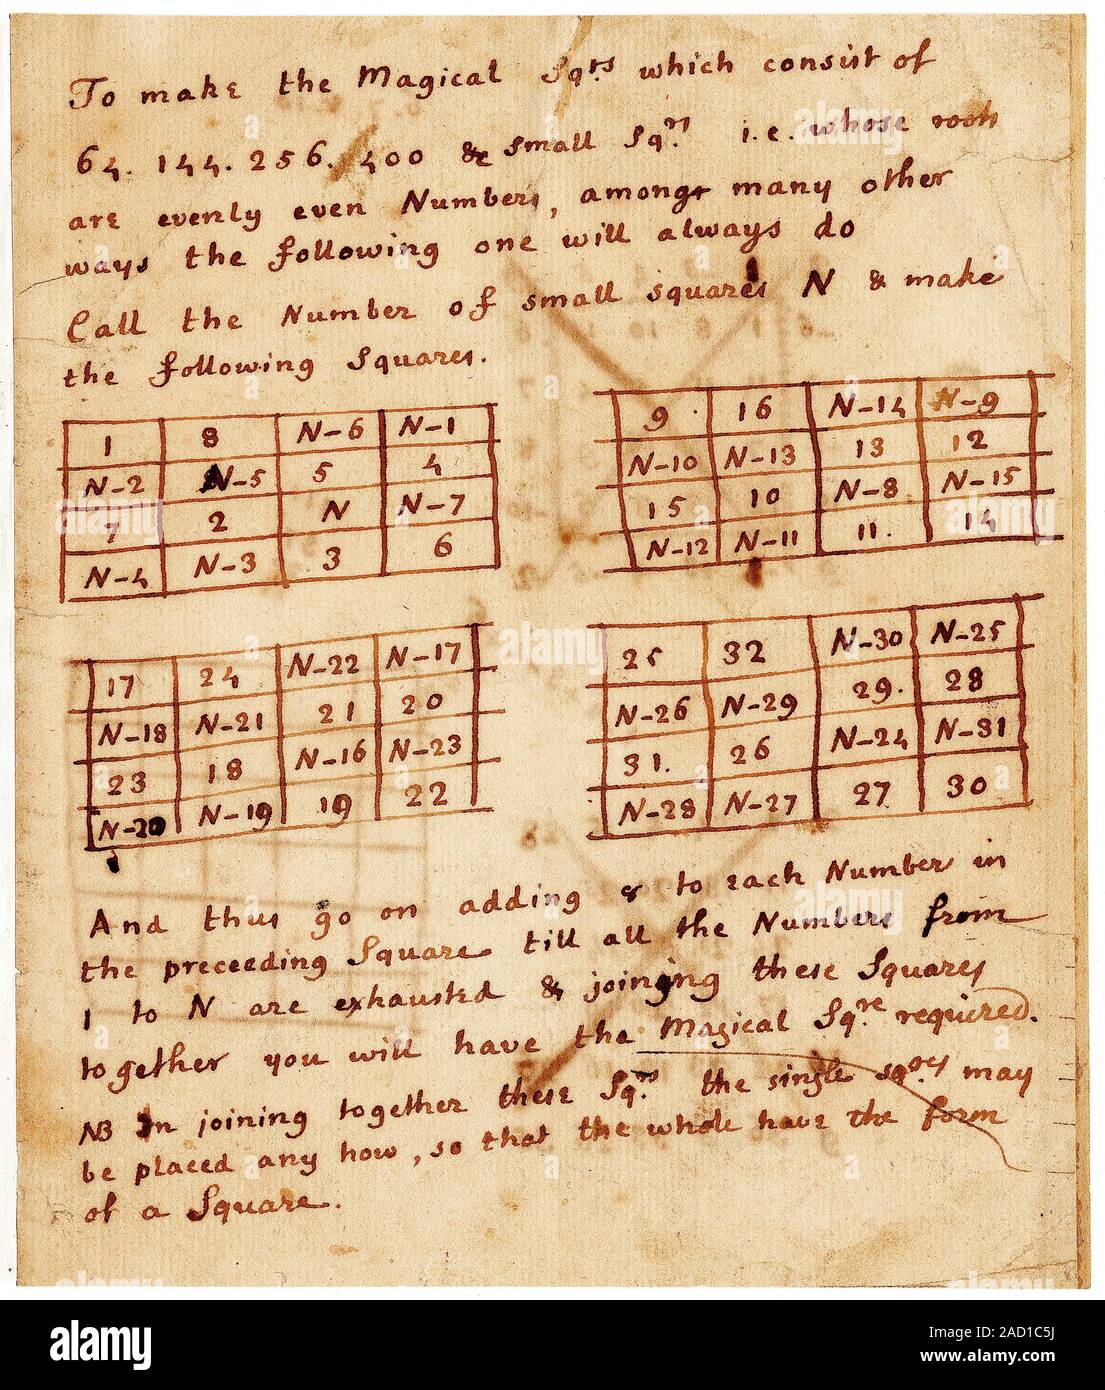 To make the Magical Sqrs which consist of
64. 144. 256. 400 & small Sqrs i.e. whose roots
are evenly even Numbers, amongst many other
ways the following one will always do
Call the Number of small squares N & make
the following Squares.
1 8 N-6 N-1
N-2 N-5 5 4
7 2 N N-7
N-4 N-3 3 6
9 16 N-14 N-9
N-10 N-13 13 12
15 10 N-8 N-15
N-12 N-11 11. 14
17 24 N-22 N-17
N-18 N-21 21 20
23 18 N-16 N-23
N-20 N-19 19 22
25 32 N-30 N-25
N-26 N-29 29. 28
31. 26 N-24 N-31
N-28 N-27 27 30
And thus go on adding 8 to each Number in
the preceeding Square till all the Numbers from
1 to N are exhausted & joining these Squares
together you will have the Magical Sqre required.
NB In joining together these Sqrs the single sqres may
be placed any how, so that the whole have the form
of a Square.
alamy
Image ID: 2AD1C5J
www.alamy.com